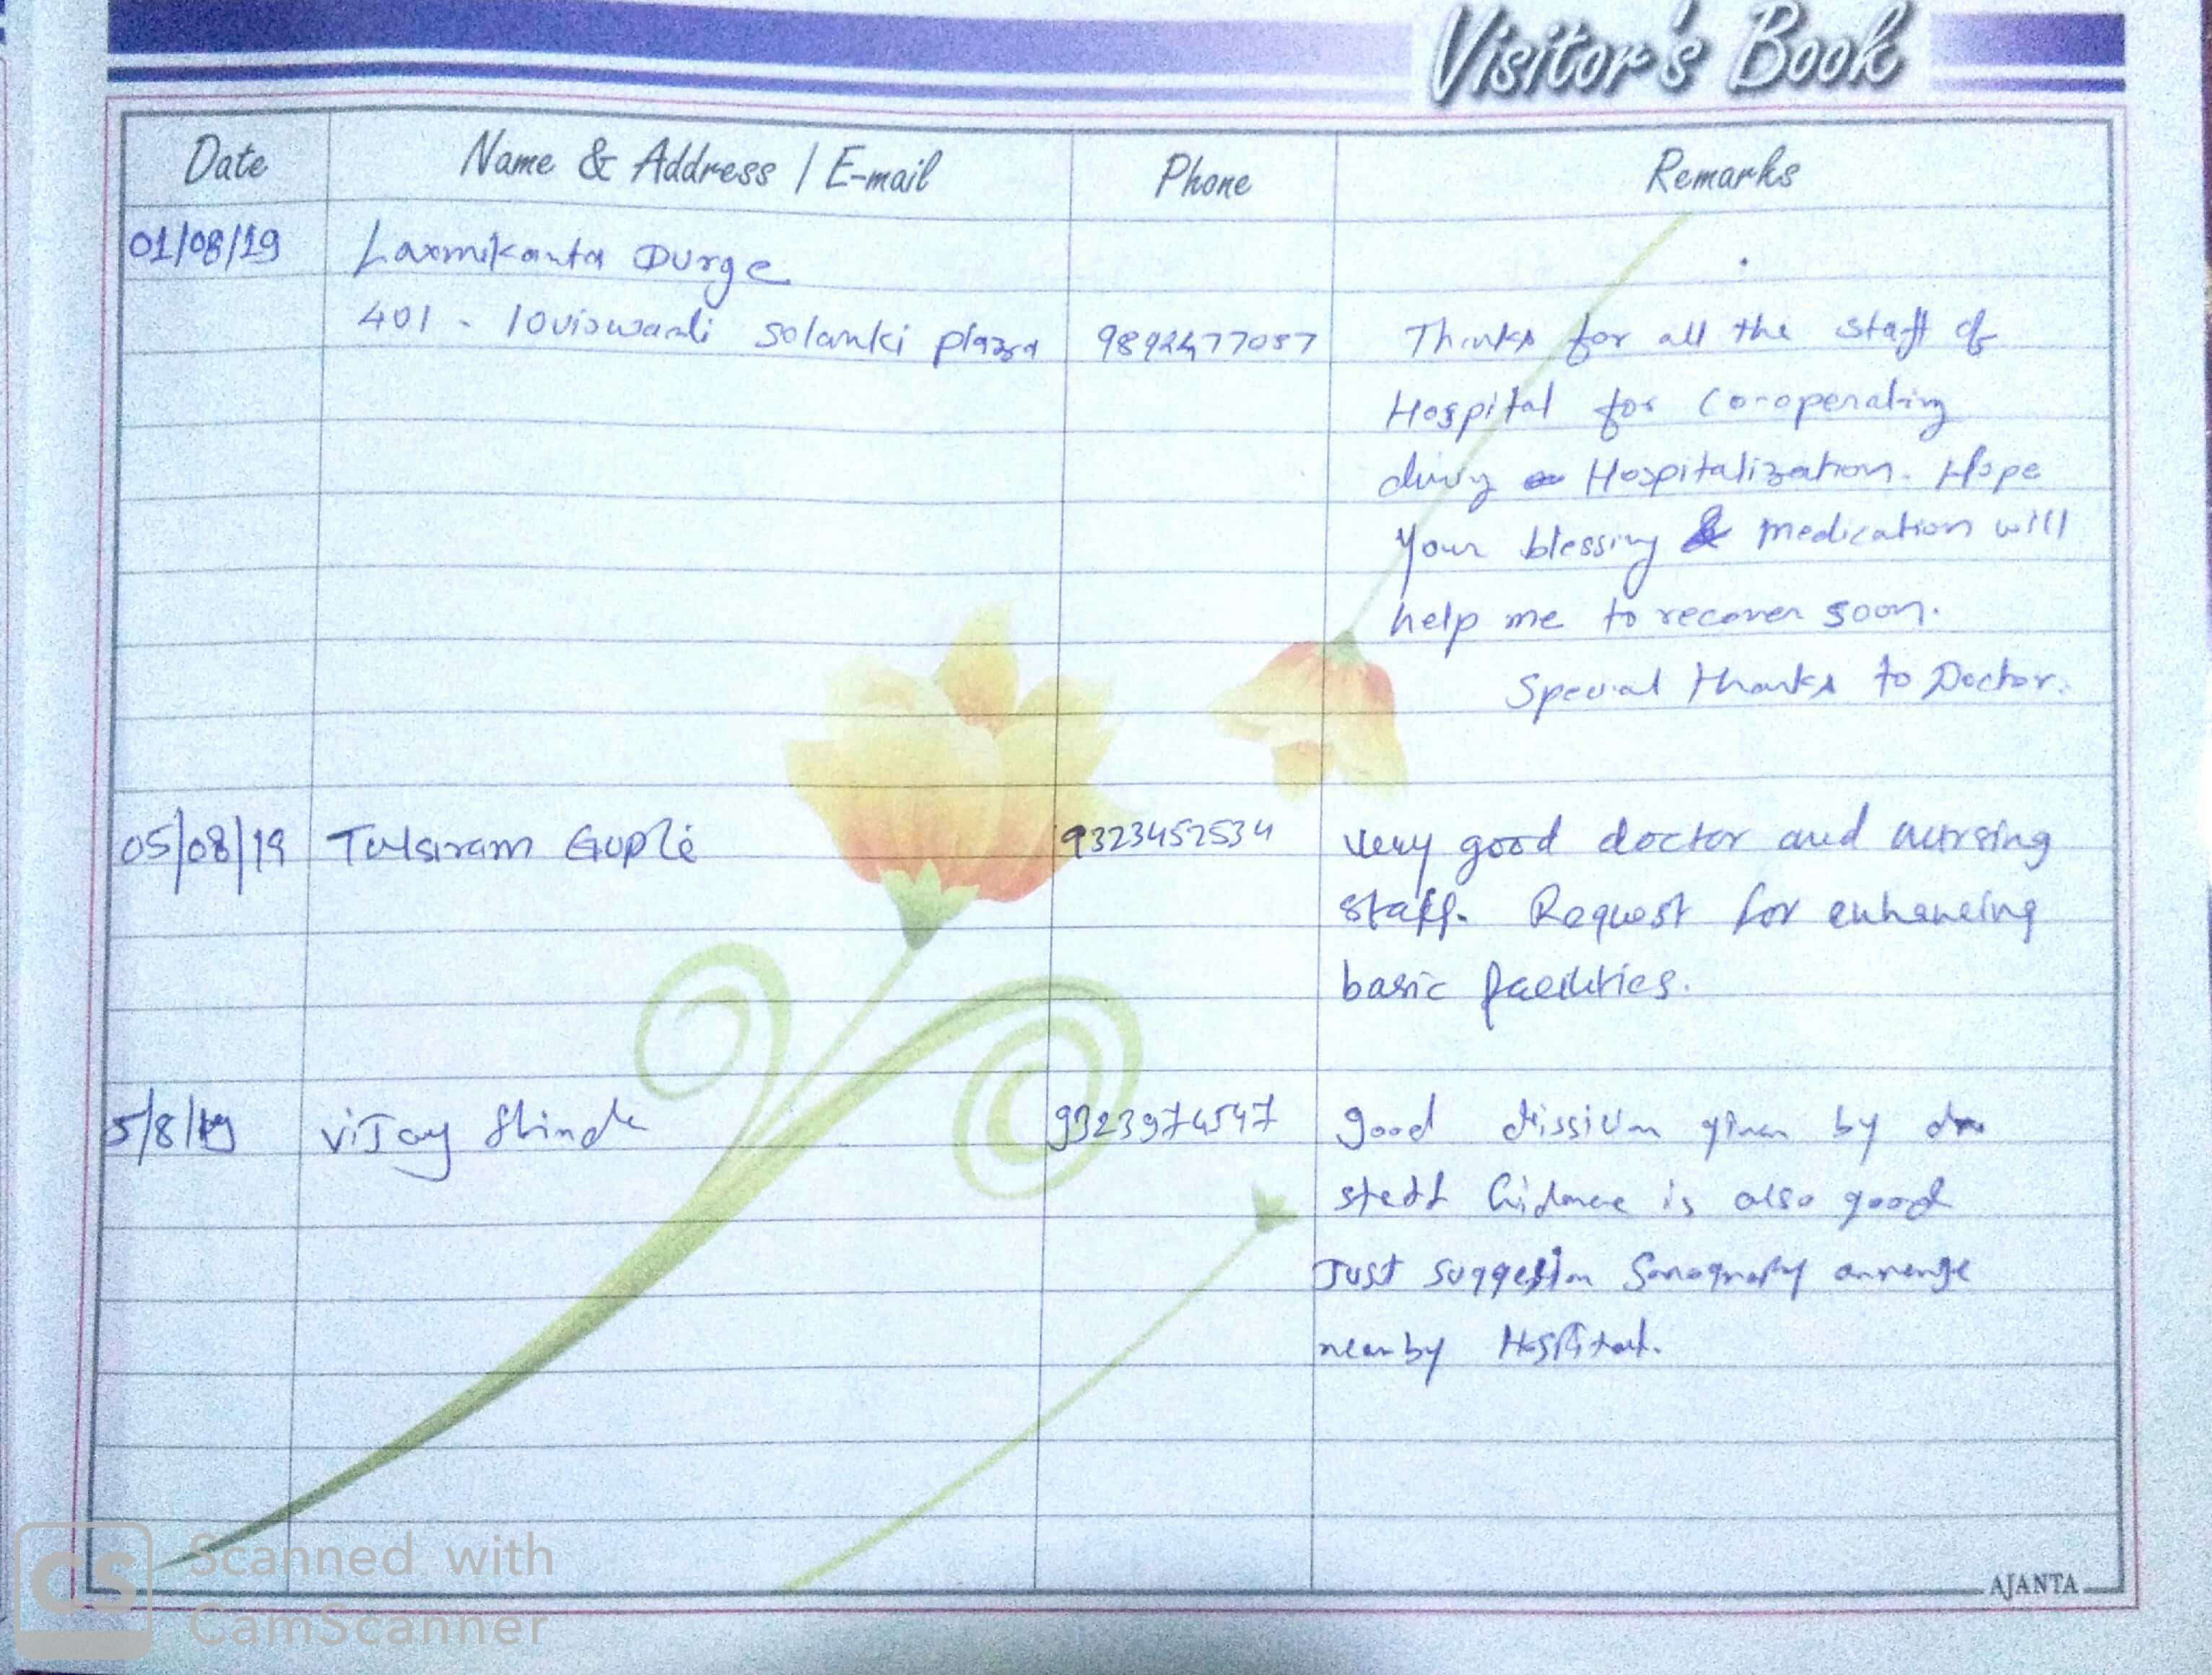 Visitor's Book
Date Name & Address / E-mail Phone Remarks
01/08/19 Laxmikanta Durge
401 - solanki plaza Thanks for all the staff of
Hospital for co-operating
Hospitalization. Hope
Your blessing & medication will
help me to recover soon.
Special thanks to Doctor.
05/08/19 Tulsiram Gupte 9323452534 very good doctor and nursing
staff. Request for enhancing
basic facilities.
5/8/19 viJay Shinde 9323974547 good given by
is also good
Just Sonography arrenge
nearby Hospital.
AJANTA
CS Scanned with
CamScanner